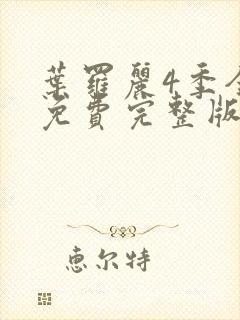 葉羅麗4季全
免費完整版
恵尔特